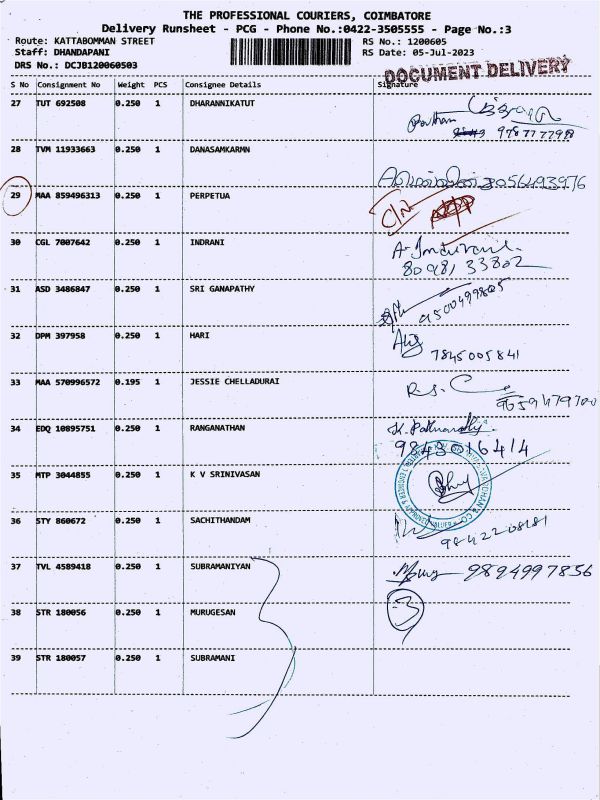 THE PROFESSIONAL COURIERS, COIMBATORE
Delivery Runsheet - PCG - Phone No.:0422-3505555 - Page No.:3
Route: KATTABOMMAN STREET RS No.: 1200605
Staff: DHANDAPANI RS Date: 05-Jul-2023
DRS No.: DCJB120060503
DOCUMENT DELIVERY
S No Consignment No Weight PCS Consignee Details Signature
27 TUT 692508 0.250 1 DHARANNIKATUT
28 TVM 11933663 0.250 1 DANASAMKARMN
29 MAA 859496313 0.250 1 PERPETUA
30 CGL 7007642 0.250 1 INDRANI
80981 33802
31 ASD 3486847 0.250 1 SRI GANAPATHY
9500499805
32 DPM 397958 0.250 1 HARI
7845005841
33 MAA 570996572 0.195 1 JESSIE CHELLADURAI
R.S.C
34 EDQ 10895751 0.250 1 RANGANATHAN
9843016414
35 MTP 3044855 0.250 1 K V SRINIVASAN
36 STY 860672 0.250 1 SACHITHANDAM
37 TVL 4589418 0.250 1 SUBRAMANIYAN
9894997856
38 STR 180056 0.250 1 MURUGESAN
3
39 STR 180057 0.250 1 SUBRAMANI